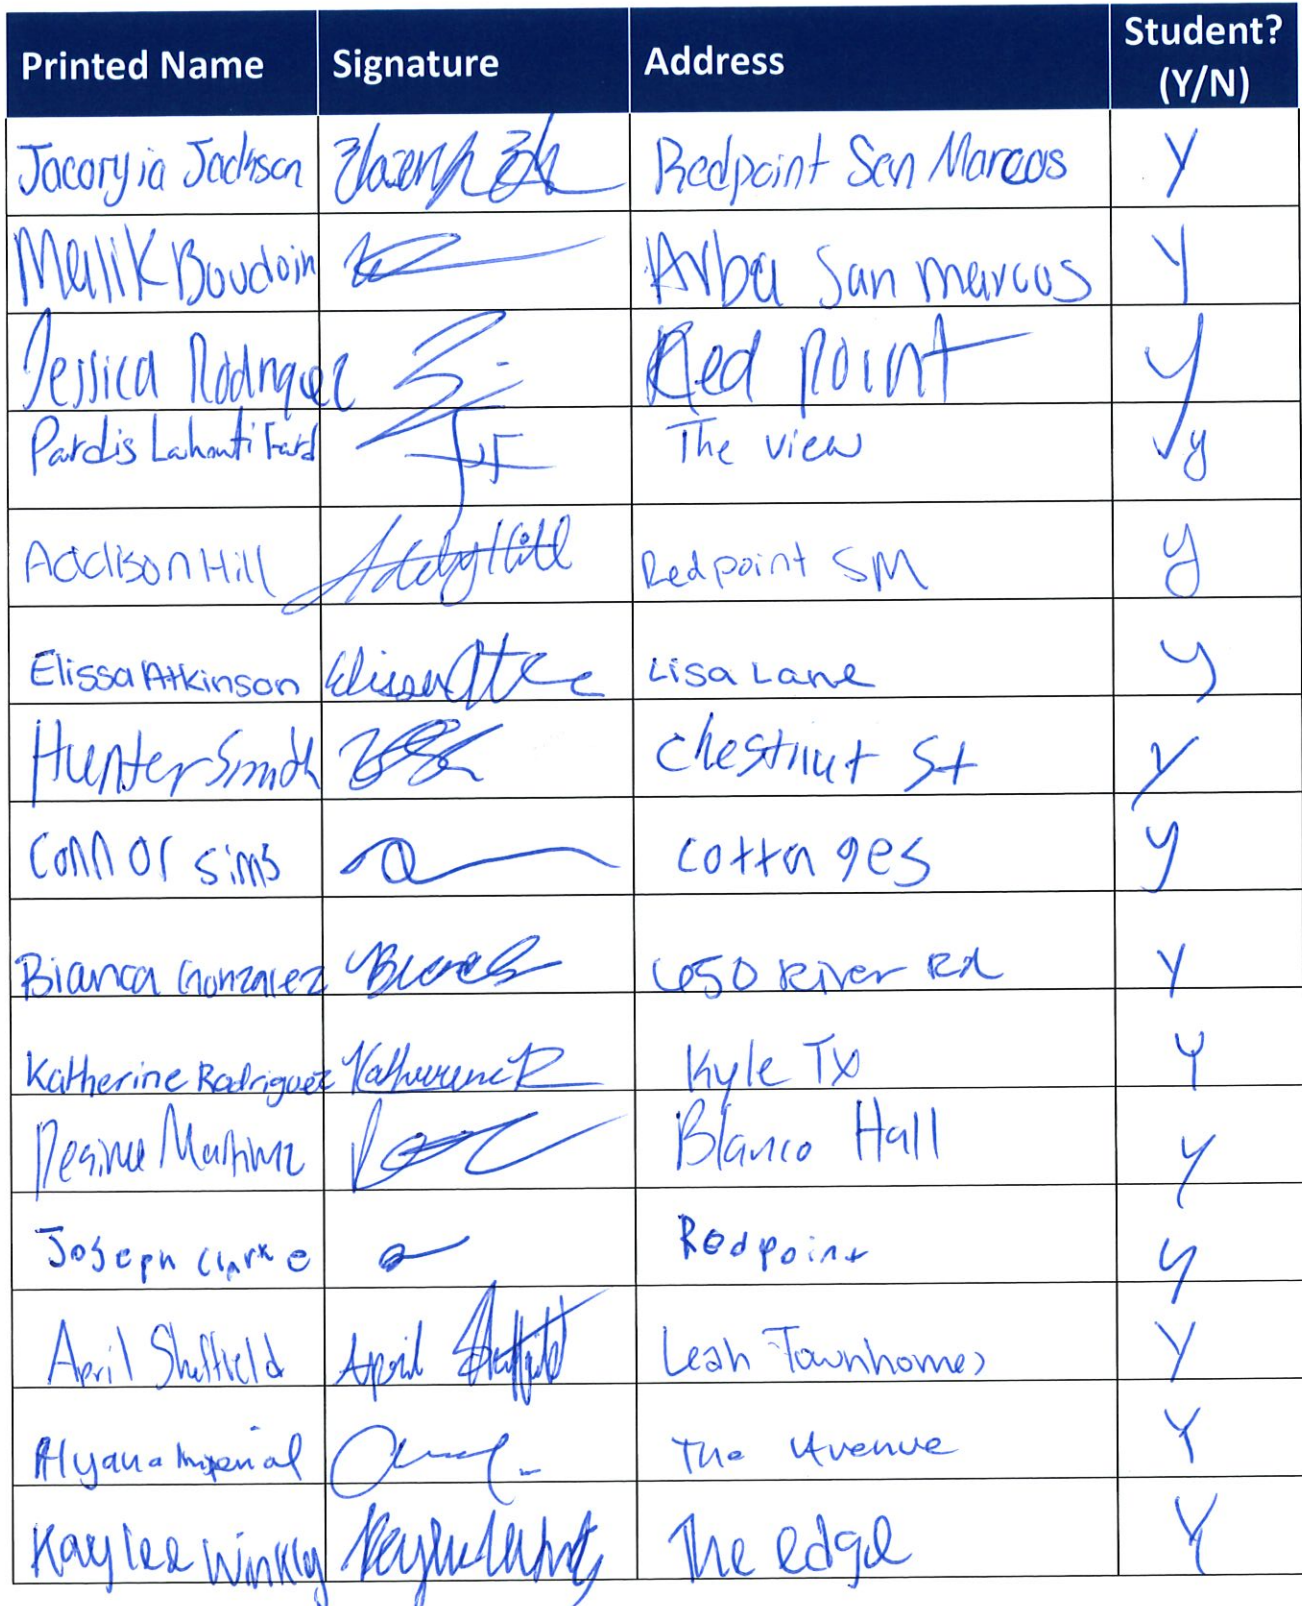 Printed Name Signature Address Student? (Y/N)
Jacoryia Jackson Redpoint San Marcos Y
Malik Boudoin Arba San marcos Y
Jessica Rodriguez Red Point y
Pardis Lahouti Fard The view y
Addison Hill Addy Hill Redpoint SM y
Elissa Atkinson Elissa Lisa Lane y
Hunter Smith Chestnut St y
Connor sims cottages y
Bianca Gonzalez 650 River Rd Y
Katherine Rodriguez Katherine R Kyle TX Y
Desiree Martinez Blanco Hall y
Joseph Clarke Redpoint y
April Sheffield April Sheffield Leah Townhomes Y
Alyana Imperial The Avenue Y
Kaylee Winkly The edge Y